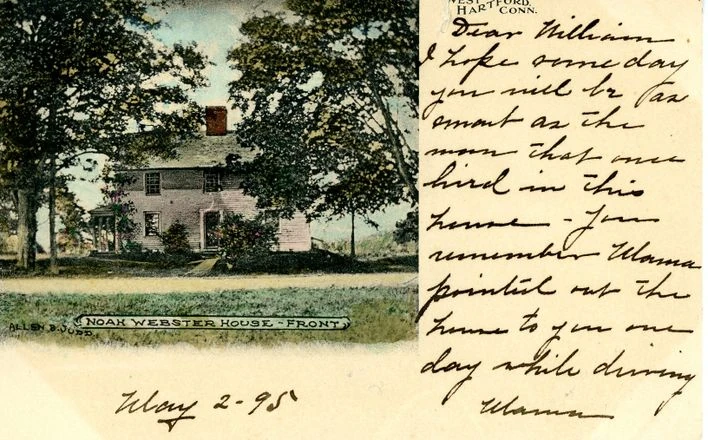 WEST HARTFORD,
CONN.
Dear William
I hope some day
you will be as
smart as the
man that once
lived in this
house - you
remember Mama
pointed out the
house to you one
day while driving
Mama
ALLEN B. JUDD.
NOAH WEBSTER HOUSE - FRONT
May 2-95